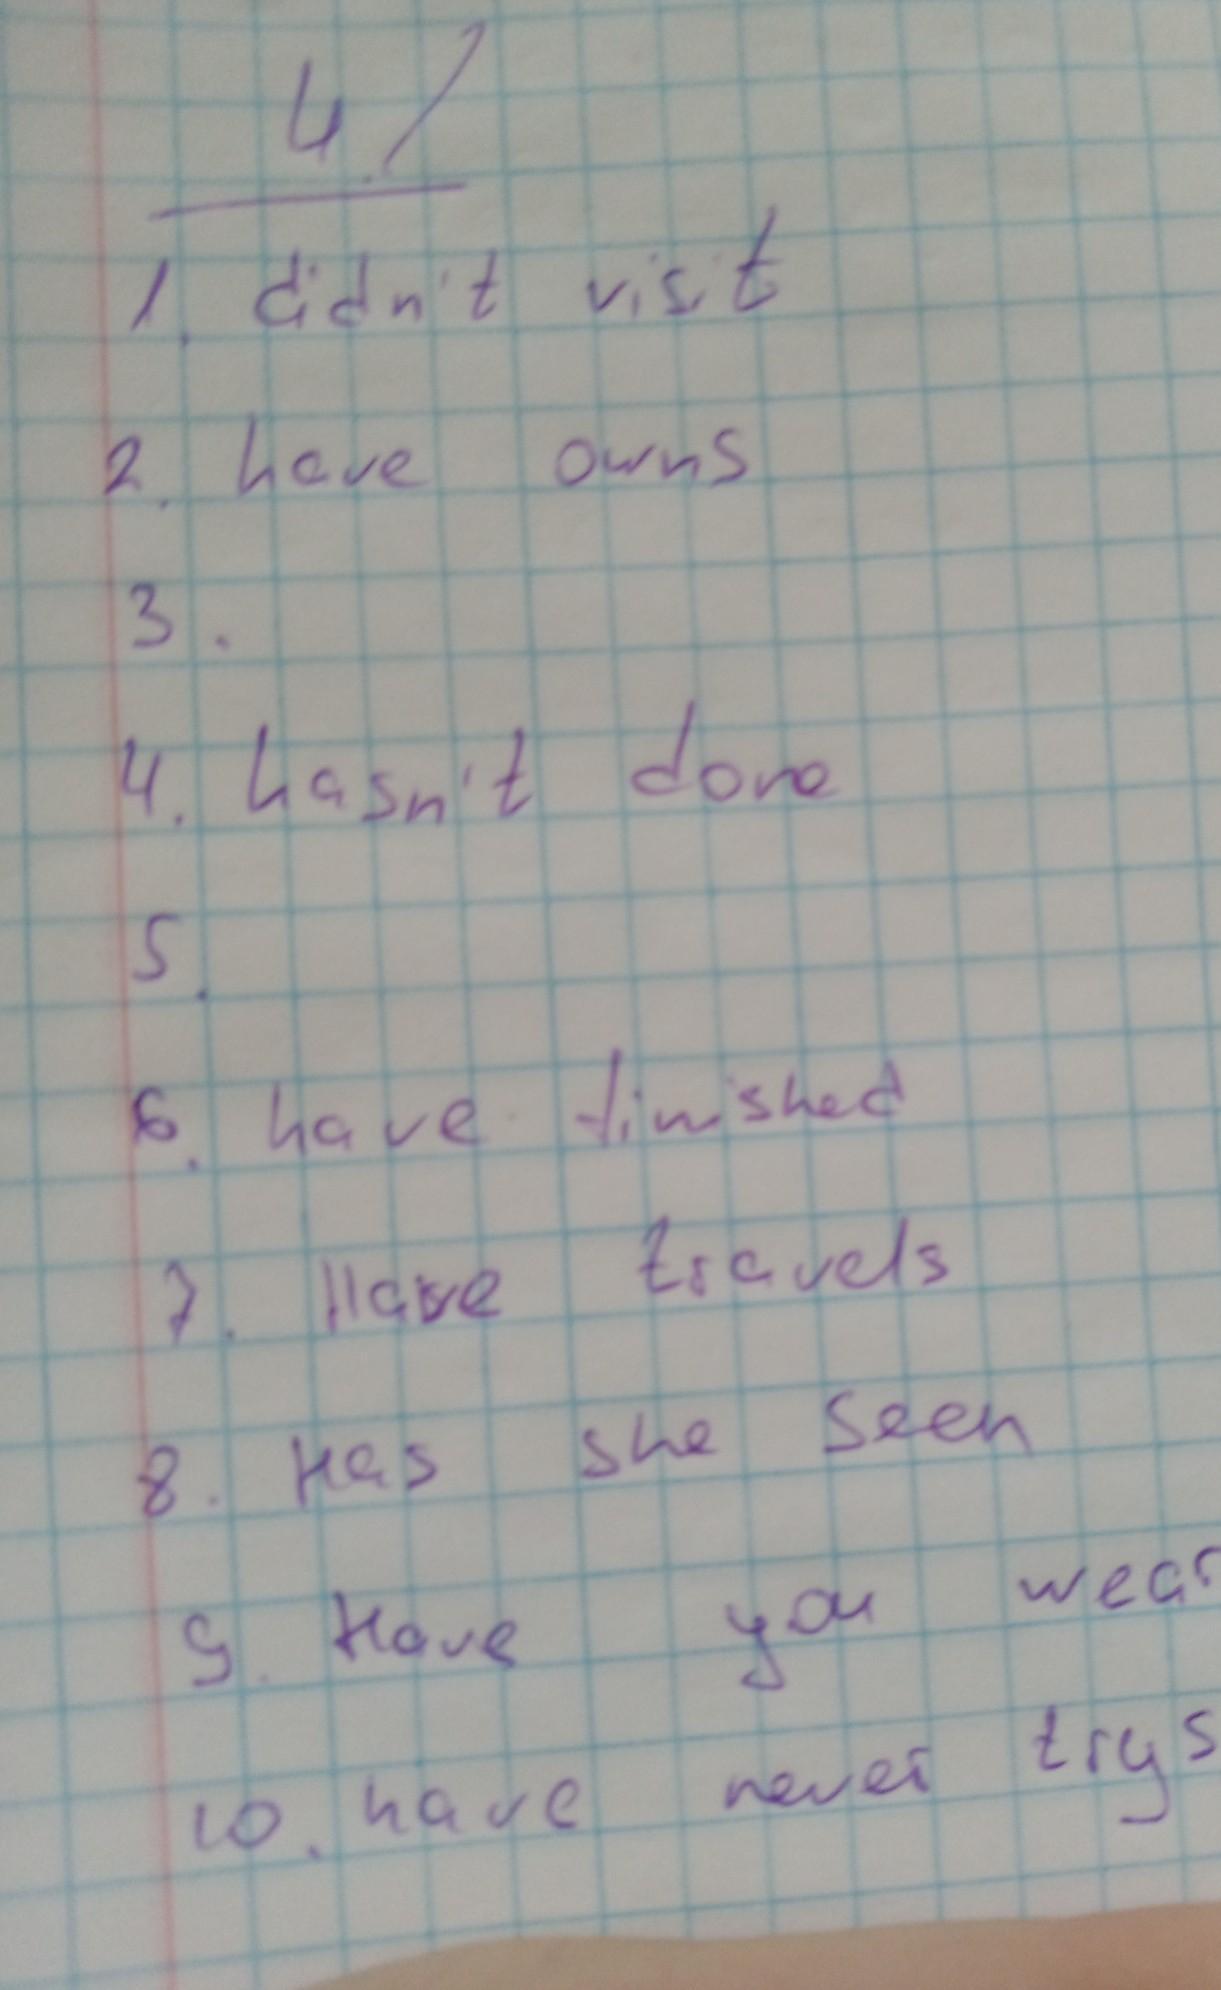 4
1. didn't visit
2. have owns
3.
4. hasn't done
5.
6. have finished
7. Have travels
8. Has she seen
9. Have you wear
10. have never trys